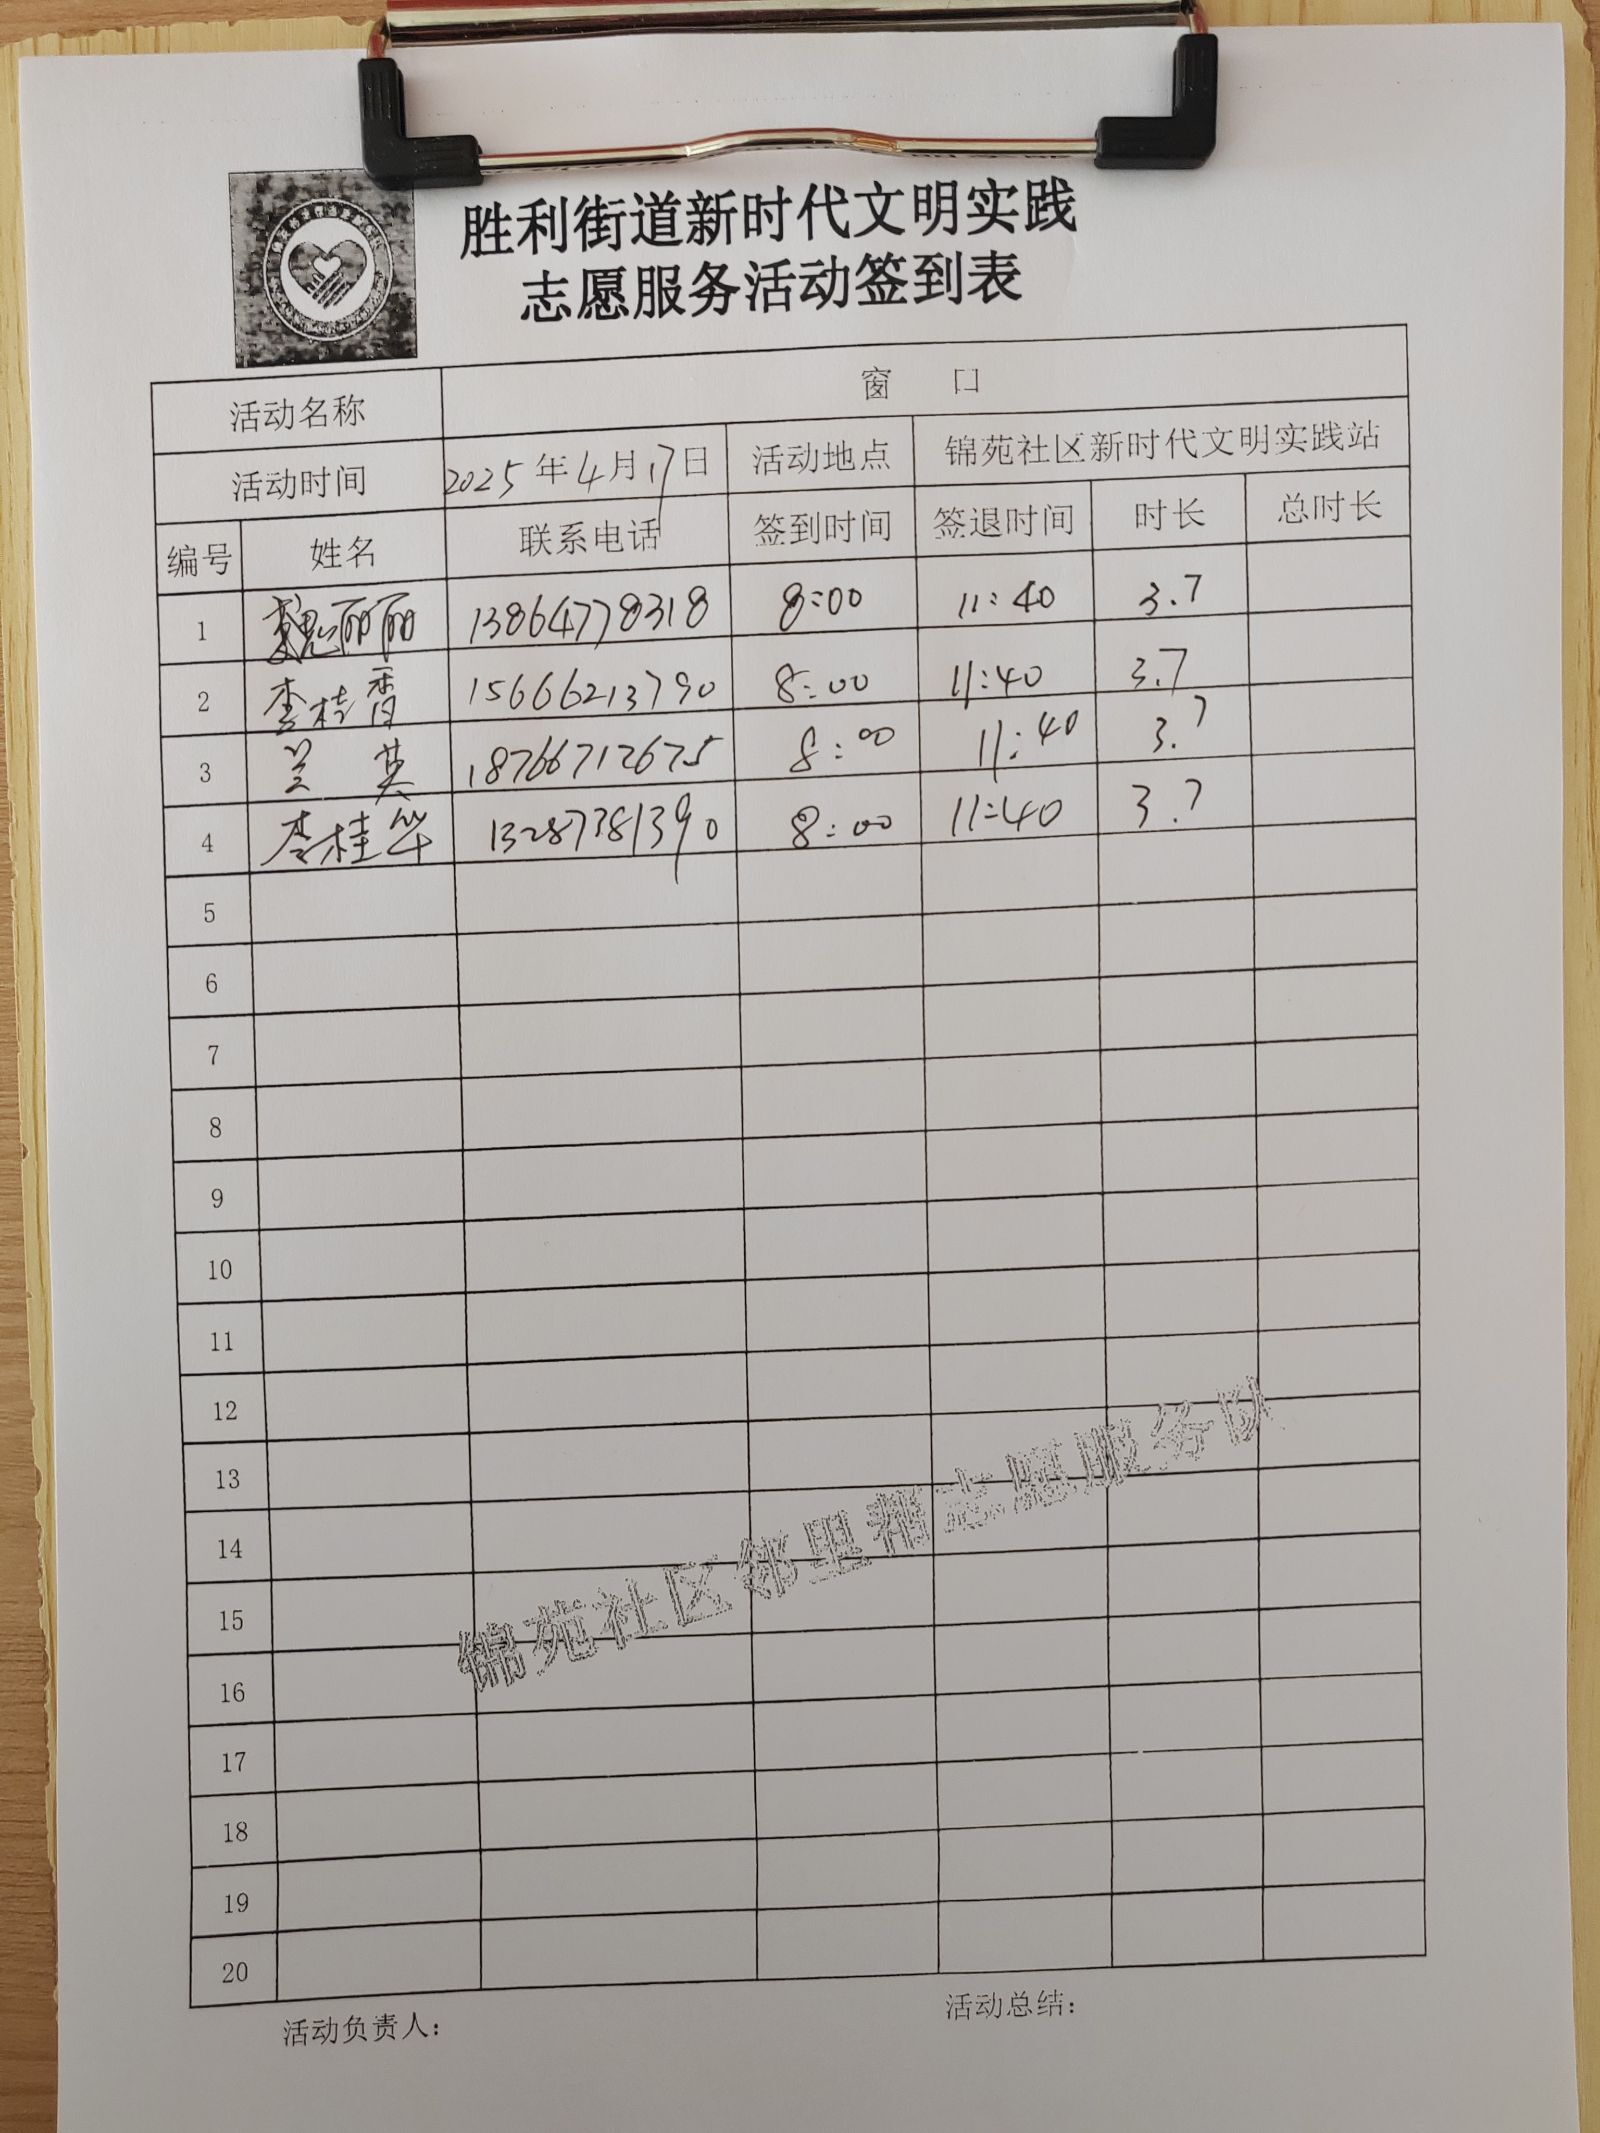 胜利街道新时代文明实践
志愿服务活动签到表
活动名称 窗 口
活动时间 2025年4月17日 活动地点 锦苑社区新时代文明实践站
编号 姓名 联系电话 签到时间 签退时间 时长 总时长
1 魏丽丽 13864778318 8:00 11:40 3.7
2 李桂香 15666213790 8:00 11:40 3.7
3 兰英 18766712675 8:00 11:40 3.7
4 李桂华 13287381390 8:00 11:40 3.7
5
6
7
8
9
10
11
12
13
14
15
16
17
18
19
20
锦苑社区邻里帮志愿服务队
活动负责人： 活动总结：